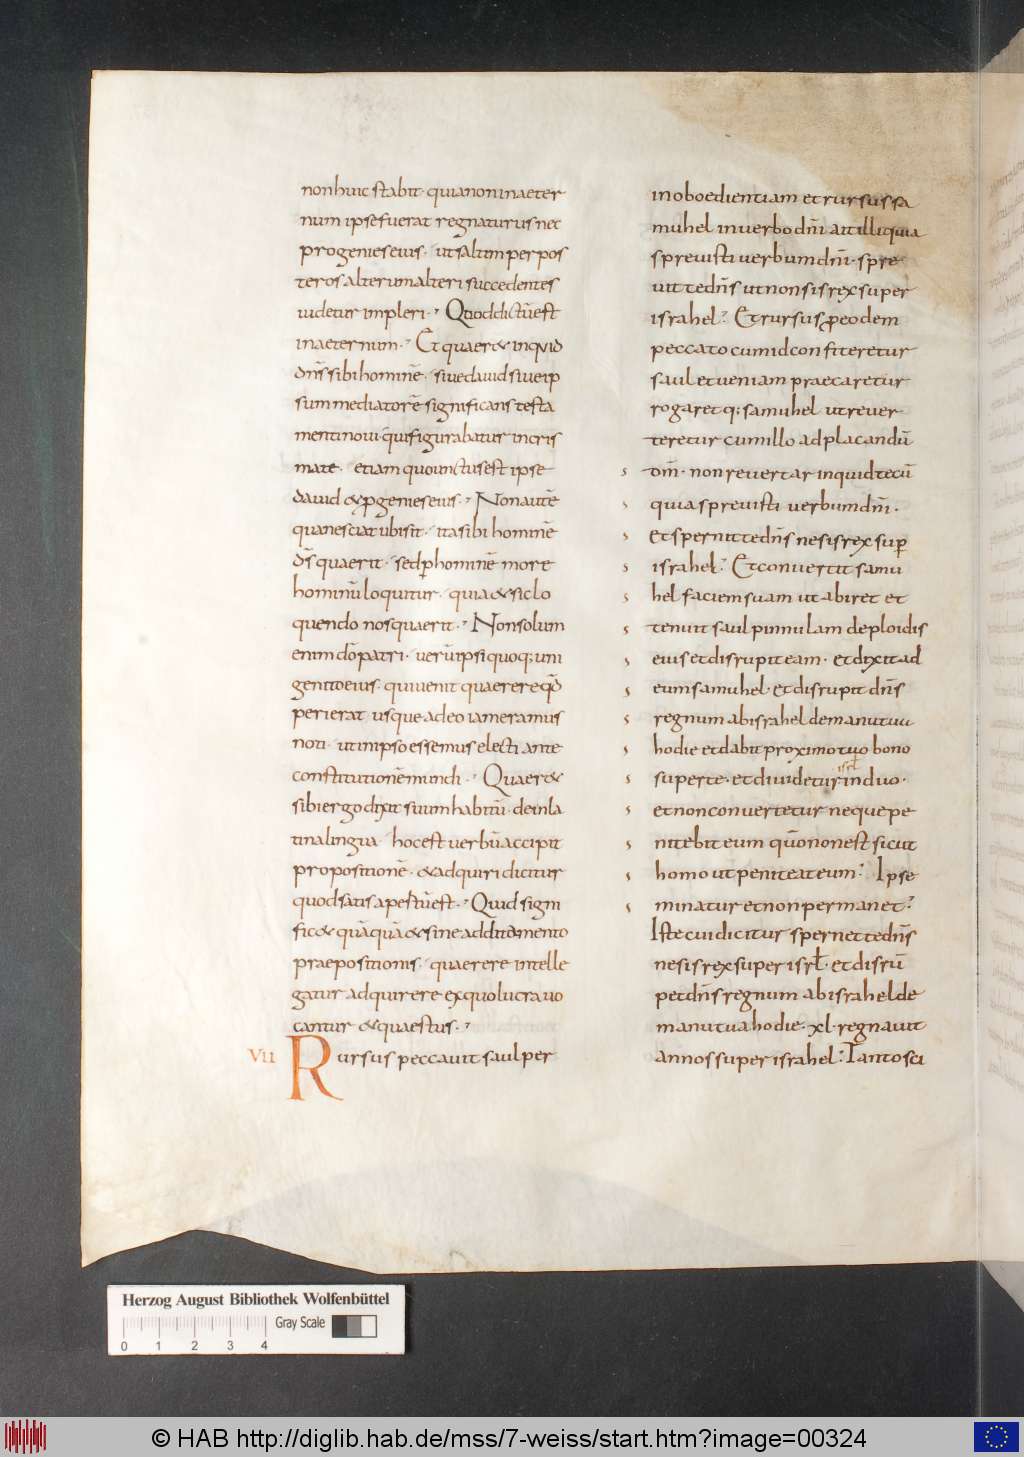 non huic stabit· quia non in aeter
num ipse fuerat regnaturus nec
progenies eius· ut saltim per pos
teros alterum alteri succedentes
uidetur impleri· Quod dictū est
in aeternum· Et quaeret inquid
dn̄s sibi hominē· siue dauid siue ip
sum mediatorē significans testa
menti noui· qui figurabatur in cris
mate· etiam quo unctus est ipse
dauid & ꝓgenies eius· Non autē
quasi nesciat ubi sit· ita sibi hominē
ds̄ quaerit· sed ꝑ hominē more
hominū loquitur· quia & sic lo
quendo nos quaerit· Non solum
enim dō patri· uerū ipsi quoq; uni
genito eius· qui uenit quaerere qđ
perierat usque adeo iam eramus
noti· ut in ipso essemus electi ante
constitutionē mundi· Quaer&
sibi ergo dixit suum habitū· de in la
tina lingua hoc est uerbū accipit
propositionē· & adquiri dicitur
quod satis apertū est· Quid signi
fic& quāquā & sine additamento
praepositionis· quaerere intelle
gatur adquirere ex quo lucra uo
cantur & quaestus·
VII Rursus peccauit saul per
inoboedientiam et rursus sa
muhel in uerbo dn̄i ait illi quia
spreuisti uerbum dn̄i· spre
uit te dn̄s ut non sis rex super
israhel· Et rursus ꝓ eodem
peccato cum id confiteretur
saul et ueniam praecaretur
rogaretq; samuhel ut reuer
teretur cum illo ad placandū
dm̄· non reuertar inquid tecū
quia spreuisti uerbum dn̄i·
et spernit te dn̄s ne sis rex suꝑ
israhel· Et conuertit samu
hel faciem suam ut abiret et
tenuit saul pinnulam deploidis
eius et disrupit eam· et dixit ad
eum samuhel· et disrupit dn̄s
regnum ab israhel de manu tua
hodie et dabit proximo tuo bono
super te· et diuidetur isrł in duo·
et non conuertetur neque pe
nitebit eum quō non est sicut
homo ut peniteat eum· Ipse
minatur et non permanet·
Iste cui dicitur spernet te dn̄s
ne sis rex super isrł· et disrū
pet dn̄s regnum ab israhel de
manu tua hodie· xl· regnauit
annos super israhel· Tanto sci
Herzog August Bibliothek Wolfenbüttel
Gray Scale
0 1 2 3 4
© HAB http://diglib.hab.de/mss/7-weiss/start.htm?image=00324